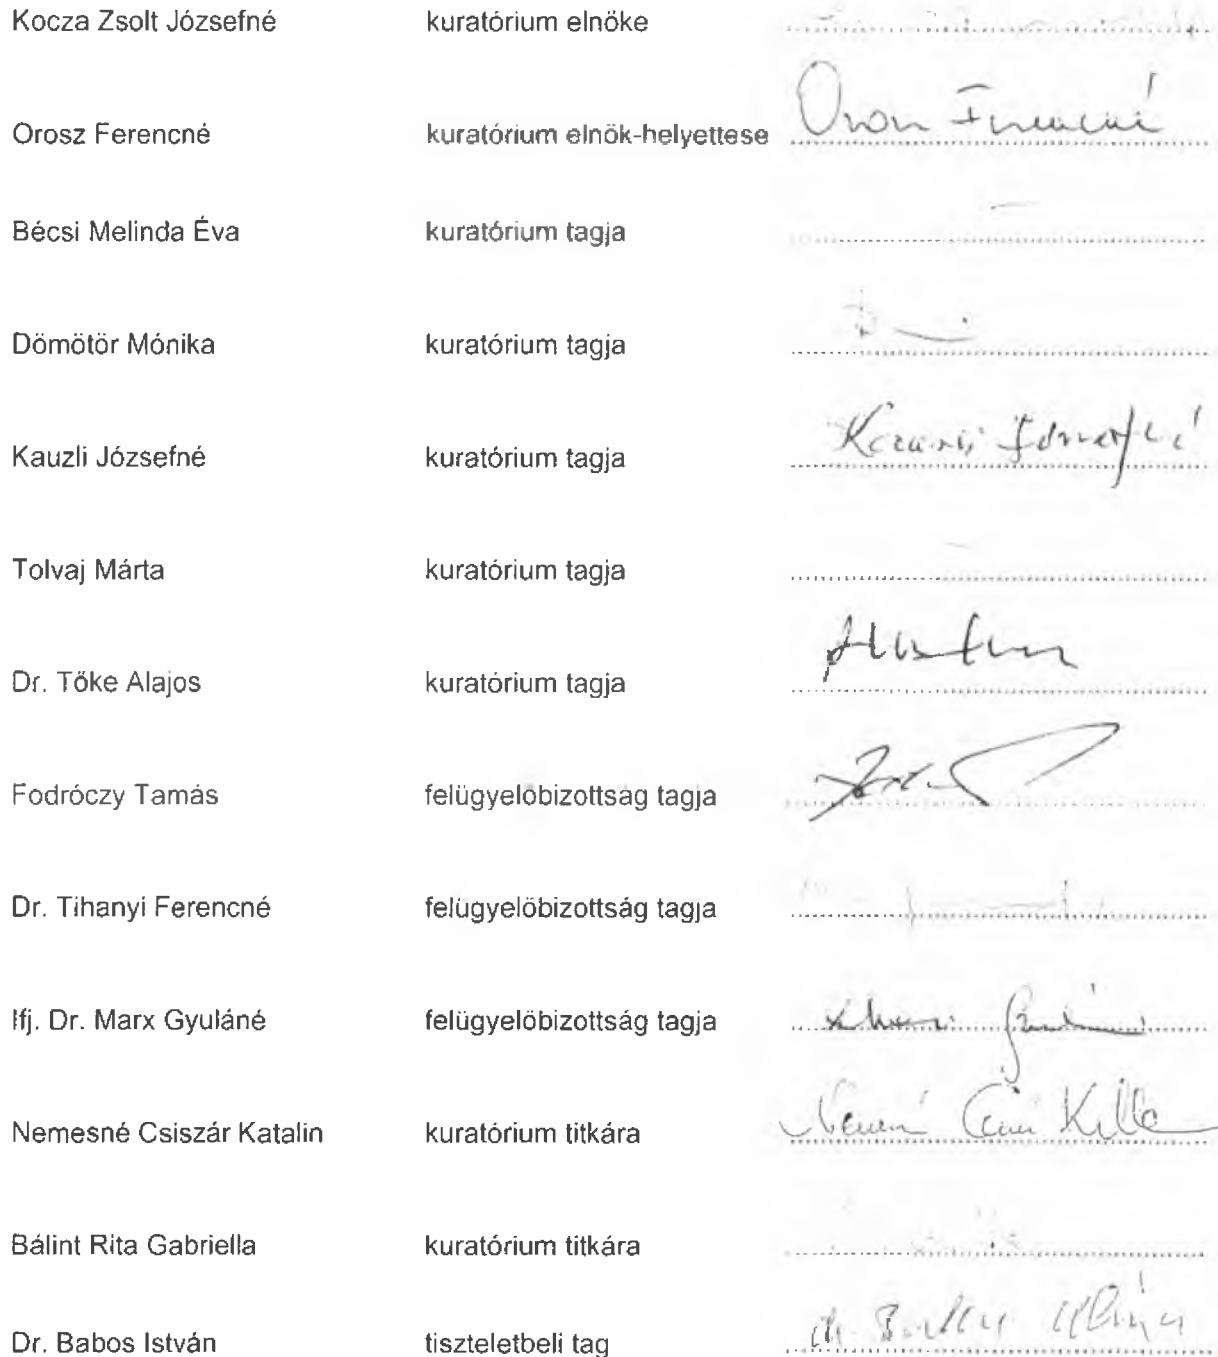 Kocza Zsolt Józsefné kuratórium elnöke
Orosz Ferencné kuratórium elnök-helyettese Orosz Ferencné
Bécsi Melinda Éva kuratórium tagja
Dömötör Mónika kuratórium tagja
Kauzli Józsefné kuratórium tagja
Tolvaj Márta kuratórium tagja
Dr. Tőke Alajos kuratórium tagja
Fodróczy Tamás felügyelőbizottság tagja
Dr. Tihanyi Ferencné felügyelőbizottság tagja
Ifj. Dr. Marx Gyuláné felügyelőbizottság tagja
Nemesné Csiszár Katalin kuratórium titkára
Bálint Rita Gabriella kuratórium titkára
Dr. Babos István tiszteletbeli tag